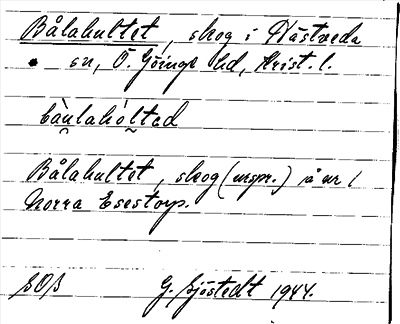 Bålahultet, skog i Hästveda
sn, Ö. Göinge hd, Krist. l.
bau̯lahóltad
Bålahultet, skog (urspr.) å nr 1
Norra Esestorp.
SOB G. Sjöstedt 1944.